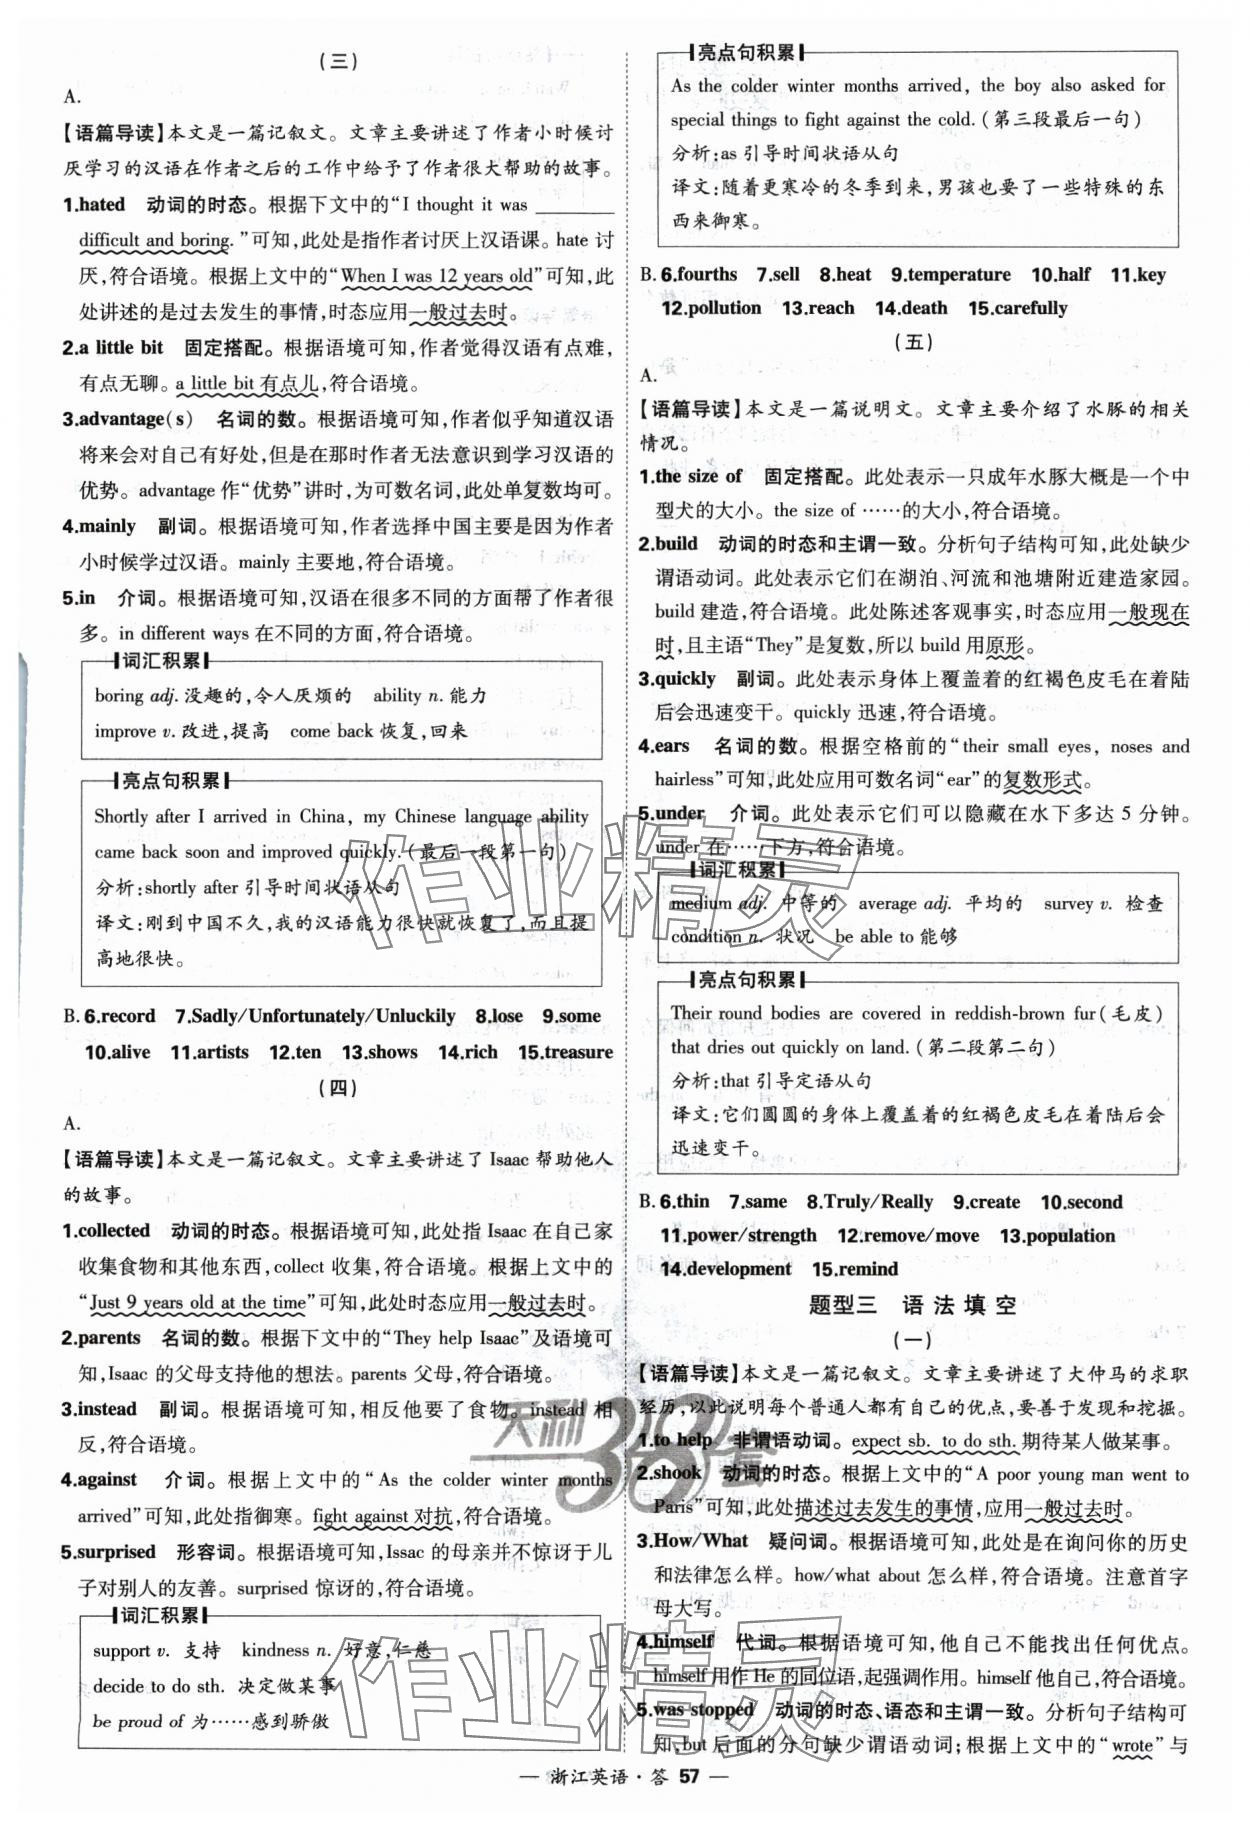 (三)
A.
【语篇导读】本文是一篇记叙文。文章主要讲述了作者小时候讨
厌学习的汉语在作者之后的工作中给予了作者很大帮助的故事。
1.hated 动词的时态。根据下文中的“I thought it was ________
difficult and boring.”可知,此处是指作者讨厌上汉语课。hate 讨
厌,符合语境。根据上文中的“When I was 12 years old”可知,此
处讲述的是过去发生的事情,时态应用一般过去时。
2.a little bit 固定搭配。根据语境可知,作者觉得汉语有点难,
有点无聊。a little bit 有点儿,符合语境。
3.advantage(s) 名词的数。根据语境可知,作者似乎知道汉语
将来会对自己有好处,但是在那时作者无法意识到学习汉语的
优势。advantage 作“优势”讲时,为可数名词,此处单复数均可。
4.mainly 副词。根据语境可知,作者选择中国主要是因为作者
小时候学过汉语。mainly 主要地,符合语境。
5.in 介词。根据语境可知,汉语在很多不同的方面帮了作者很
多。in different ways 在不同的方面,符合语境。
词汇积累
boring adj. 没趣的,令人厌烦的 ability n. 能力
improve v. 改进,提高 come back 恢复,回来
亮点句积累
Shortly after I arrived in China, my Chinese language ability
came back soon and improved quickly.(最后一段第一句)
分析:shortly after 引导时间状语从句
译文:刚到中国不久,我的汉语能力很快就恢复了,而且提
高地很快。
B. 6.record 7.Sadly/Unfortunately/Unluckily 8.lose 9.some
10.alive 11.artists 12.ten 13.shows 14.rich 15.treasure
(四)
A.
【语篇导读】本文是一篇记叙文。文章主要讲述了 Isaac 帮助他人
的故事。
1.collected 动词的时态。根据语境可知,此处指 Isaac 在自己家
收集食物和其他东西,collect 收集,符合语境。根据上文中的
“Just 9 years old at the time”可知,此时态应用一般过去时。
2.parents 名词的数。根据下文中的“They help Isaac”及语境可
知,Isaac 的父母支持他的想法。parents 父母,符合语境。
3.instead 副词。根据语境可知,相反他要了食物。instead 相
反,符合语境。
4.against 介词。根据上文中的“As the colder winter months
arrived”可知,此处指御寒。fight against 对抗,符合语境。
5.surprised 形容词。根据语境可知,Issac 的母亲并不惊讶于儿
子对别人的友善。surprised 惊讶的,符合语境。
词汇积累
support v. 支持 kindness n. 好意,仁慈
decide to do sth. 决定做某事
be proud of 为……感到骄傲
亮点句积累
As the colder winter months arrived, the boy also asked for
special things to fight against the cold.(第三段最后一句)
分析:as 引导时间状语从句
译文:随着更寒冷的冬季到来,男孩也要了一些特殊的东
西来御寒。
B. 6.fourths 7.sell 8.heat 9.temperature 10.half 11.key
12.pollution 13.reach 14.death 15.carefully
(五)
A.
【语篇导读】本文是一篇说明文。文章主要介绍了水豚的相关
情况。
1.the size of 固定搭配。此处表示一只成年水豚大概是一个中
型犬的大小。the size of ……的大小,符合语境。
2.build 动词的时态和主谓一致。分析句子结构可知,此处缺少
谓语动词。此处表示它们在湖泊、河流和池塘附近建造家园。
build 建造,符合语境。此处陈述客观事实,时态应用一般现在
时,且主语“They”是复数,所以 build 用原形。
3.quickly 副词。此处表示身体上覆盖着的红褐色皮毛在着陆
后会迅速变干。quickly 迅速,符合语境。
4.ears 名词的数。根据空格前的“their small eyes, noses and
hairless”可知,此处应用可数名词“ear”的复数形式。
5.under 介词。此处表示它们可以隐藏在水下多达 5 分钟。
under 在……下方,符合语境。
词汇积累
medium adj. 中等的 average adj. 平均的 survey v. 检查
condition n. 状况 be able to 能够
亮点句积累
Their round bodies are covered in reddish-brown fur(毛皮)
that dries out quickly on land.(第二段第二句)
分析:that 引导定语从句
译文:它们圆圆的身体上覆盖着的红褐色皮毛在着陆后会
迅速变干。
B. 6.thin 7.same 8.Truly/Really 9.create 10.second
11.power/strength 12.remove/move 13.population
14.development 15.remind
题型三 语法填空
(一)
【语篇导读】本文是一篇记叙文。文章主要讲述了大仲马的求职
经历,以此说明每个普通人都有自己的优点,要善于发现和挖掘。
1.to help 非谓语动词。expect sb. to do sth. 期待某人做某事。
2.shook 动词的时态。根据上文中的“A poor young man went to
Paris”可知,此处描述过去发生的事情,应用一般过去时。
3.How/What 疑问词。根据语境可知,此处是在询问你的历史
和法律怎么样。how/what about 怎么样,符合语境。注意首字
母大写。
4.himself 代词。根据语境可知,他自己不能找出任何优点。
himself 用作 He 的同位语,起强调作用。himself 他自己,符合语境。
5.was stopped 动词的时态、语态和主谓一致。分析句子结构可
知,but 后面的分句缺少谓语动词;根据上下文中的“wrote”与
作业精灵
天利38套
作业精灵
— 浙江英语·答 57 —